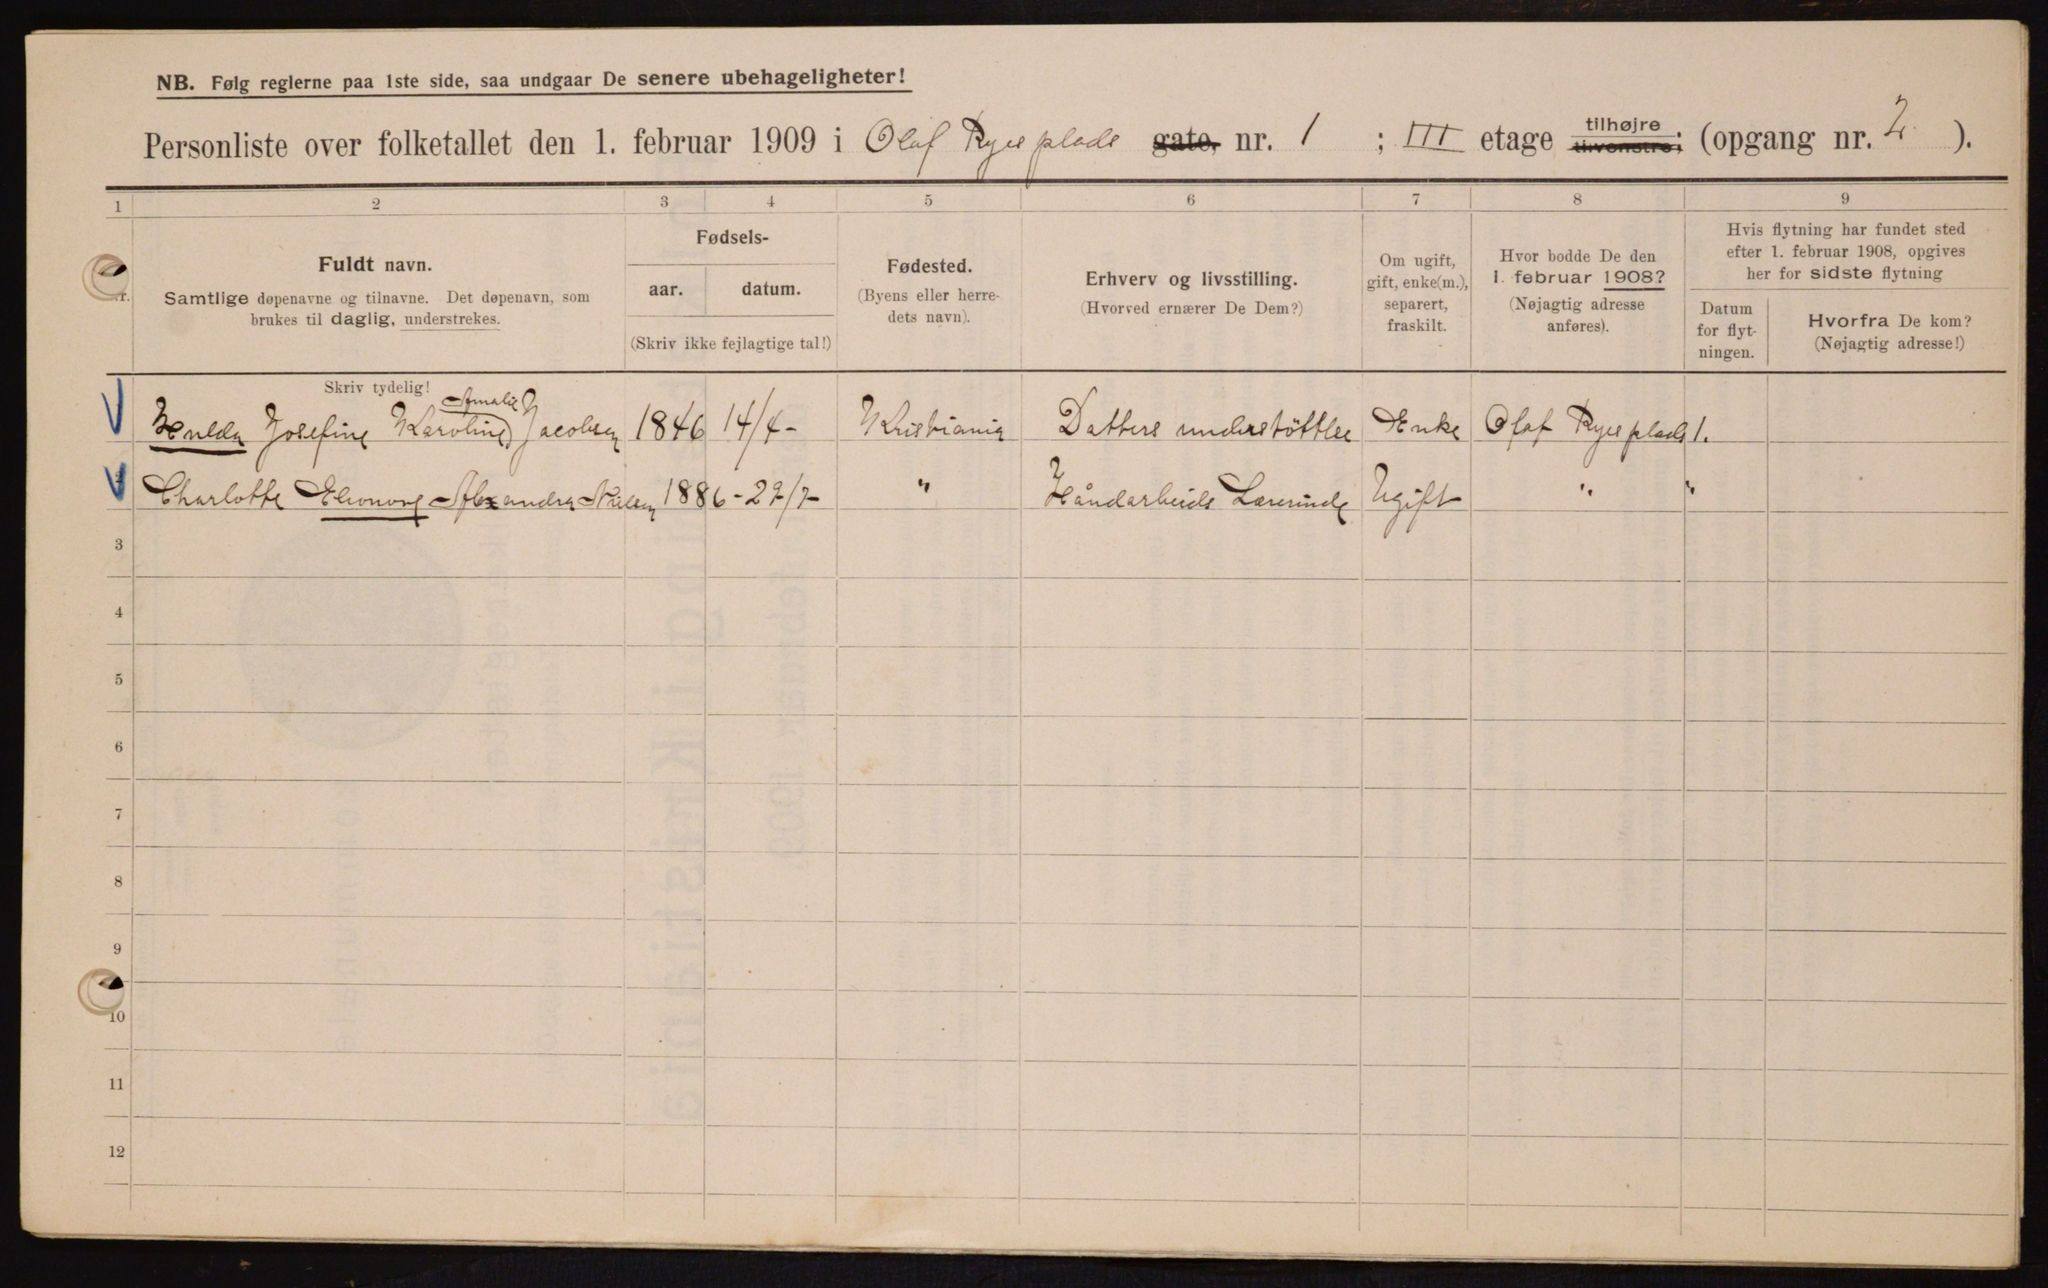 NB. Følg reglerne paa 1ste side, saa undgaar De senere ubehageligheter!
Personliste over folketallet den 1. februar 1909 i Olaf Ryes plads gate, nr. 1 ; III etage tilhøjre tilvenstre; (opgang nr. 2 ).
1 2 3 4 5 6 7 8 9
Fuldt navn.
Samtlige døpenavne og tilnavne. Det døpenavn, som
brukes til daglig, understrekes.
Skriv tydelig!
Fødsels-
aar. datum.
(Skriv ikke fejlagtige tal!)
Fødested.
(Byens eller herre-
dets navn).
Erhverv og livsstilling.
(Hvorved ernærer De Dem?)
Om ugift,
gift, enke(m.),
separert,
fraskilt.
Hvor bodde De den
1. februar 1908?
(Nøjagtig adresse
anføres).
Hvis flytning har fundet sted
efter 1. februar 1908, opgives
her for sidste flytning
Datum
for flyt-
ningen.
Hvorfra De kom?
(Nøjagtig adresse!)
Amalie
Hulda Josefine Karoline Jacobsen 1846 14/4- Kristiania Datters understöttlse Enke Olaf Ryes plads 1.
Charlotte Elionore Alexandra Nielsen 1886 - 29/7 " Håndarbeids Lærerinde Ugift " "
3
4
5
6
7
8
9
10
11
12